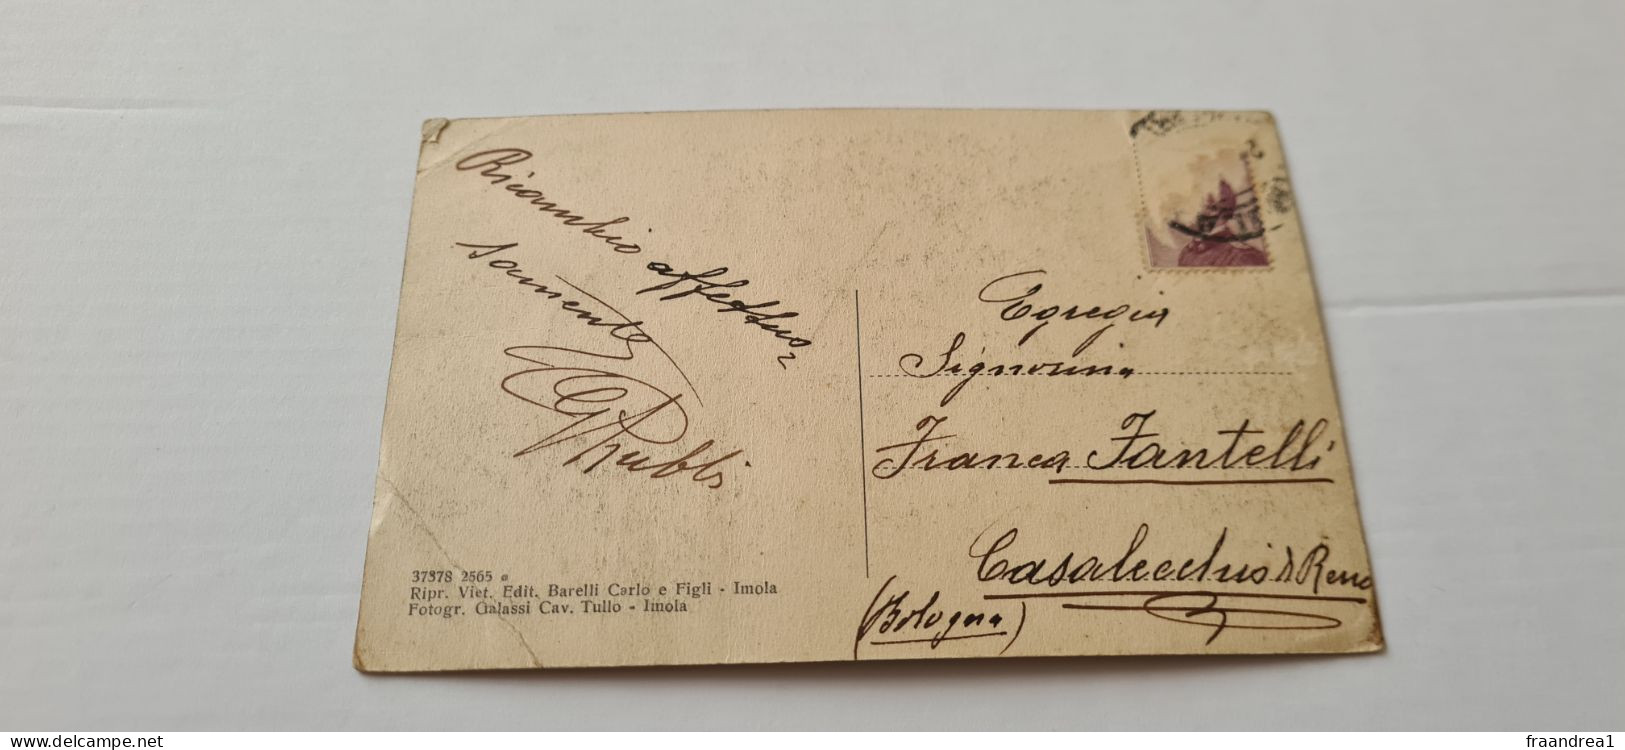 Ricambio affettuo=
samente
Egregia
Signorina
Franca Fantelli
Casalecchio d Reno
(Bologna)
37378 2565
Ripr. Viet. Edit. Barelli Carlo e Figli - Imola
Fotogr. Galassi Cav. Tullo - Imola
www.delcampe.net
fraandrea1